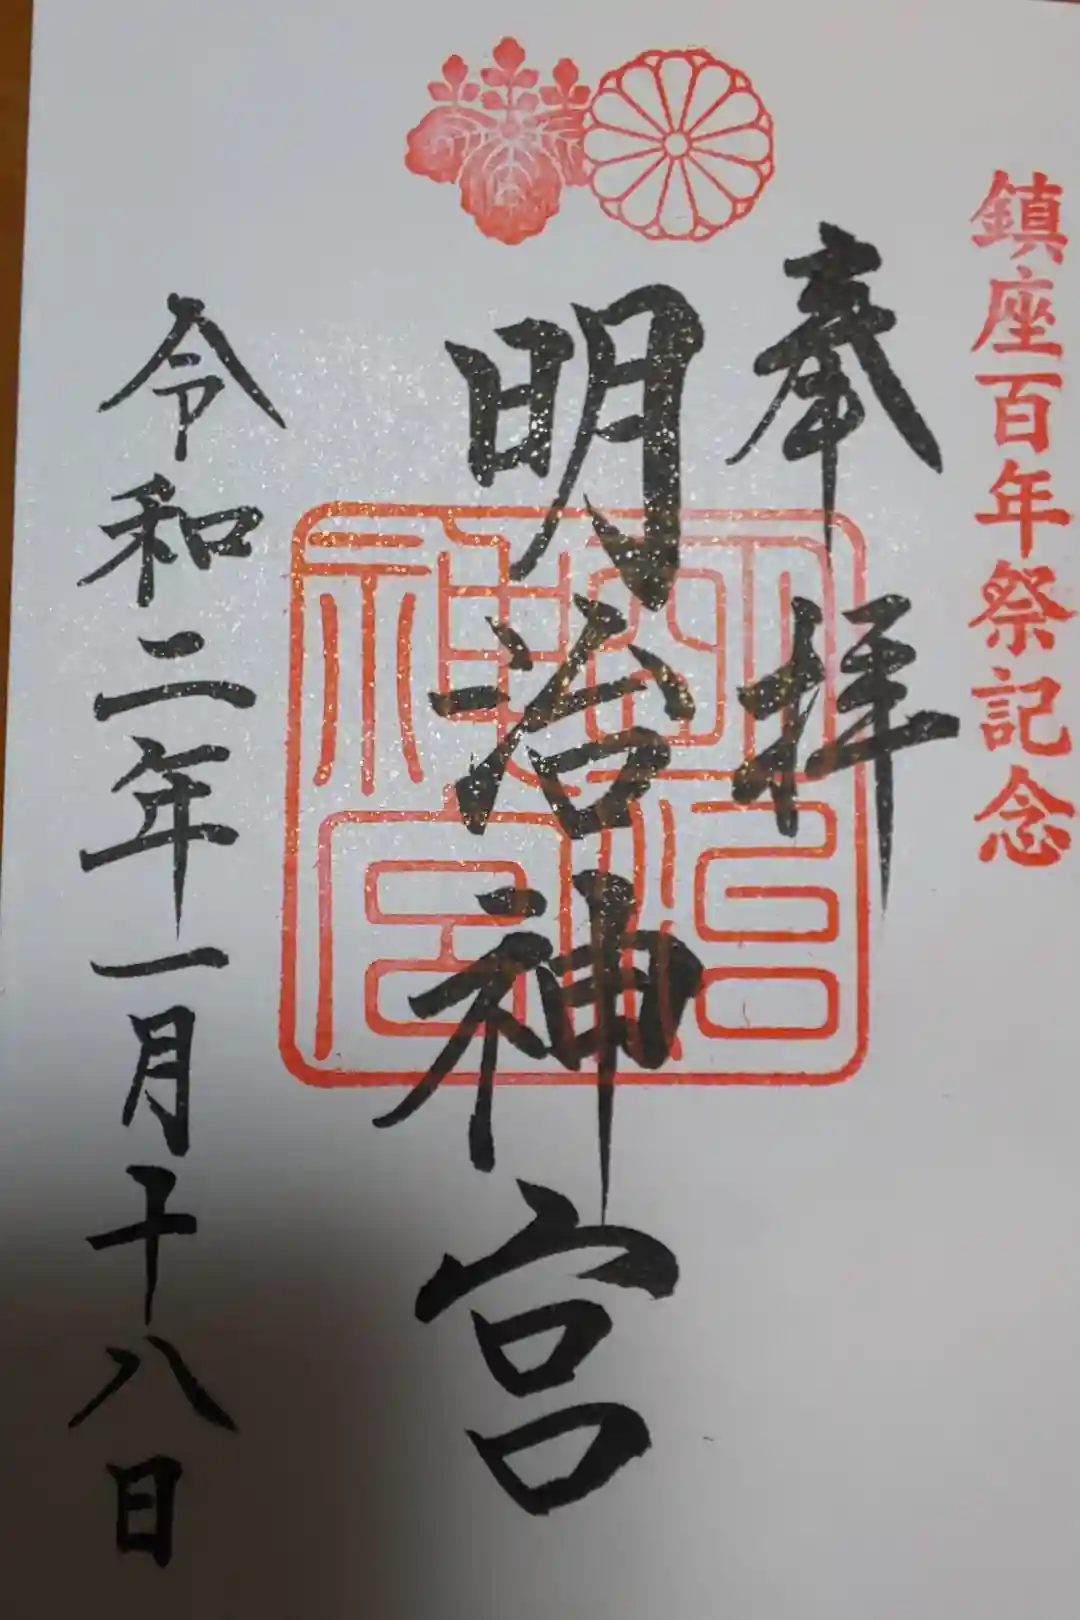 鎮座百年祭記念
奉拝
明治神宮
明治神宮
令和二年一月十八日